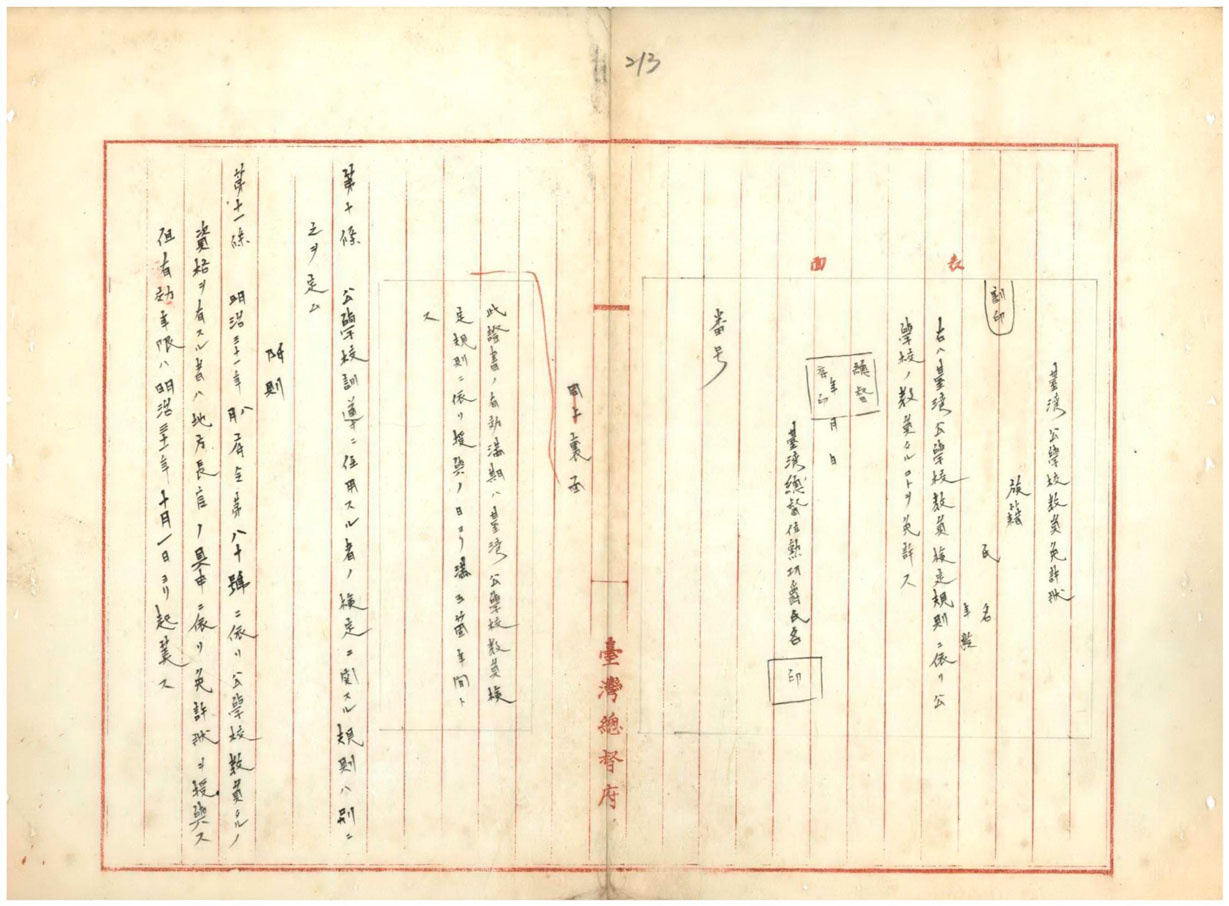 213
表面
臺灣公學校教員免許狀
割印
族籍
氏名
年齡
右ハ臺灣公學校教員檢定規則ニ依リ公
學校ノ教員タルコトヲ免許ス
年月日
總督
印
臺灣總督位勲功爵氏名
印
番号
臺灣總督府
裏面
此證書ノ有効滿期ハ臺灣公學校教員檢
定規則ニ依リ授與ノ日ヨリ滿五箇年間ト
ス
第十條 公學校訓導ニ任用スル者ノ檢定ニ関スル規則ハ別ニ
之ヲ定ム
附則
第十一條 明治三十一年八月府令第八十號ニ依リ公學校教員タルノ
資格ヲ有スル者ハ地方長官ノ具申ニ依リ免許狀ヲ授與ス
但有効年限ハ明治三十一年十月一日ヨリ起算ス